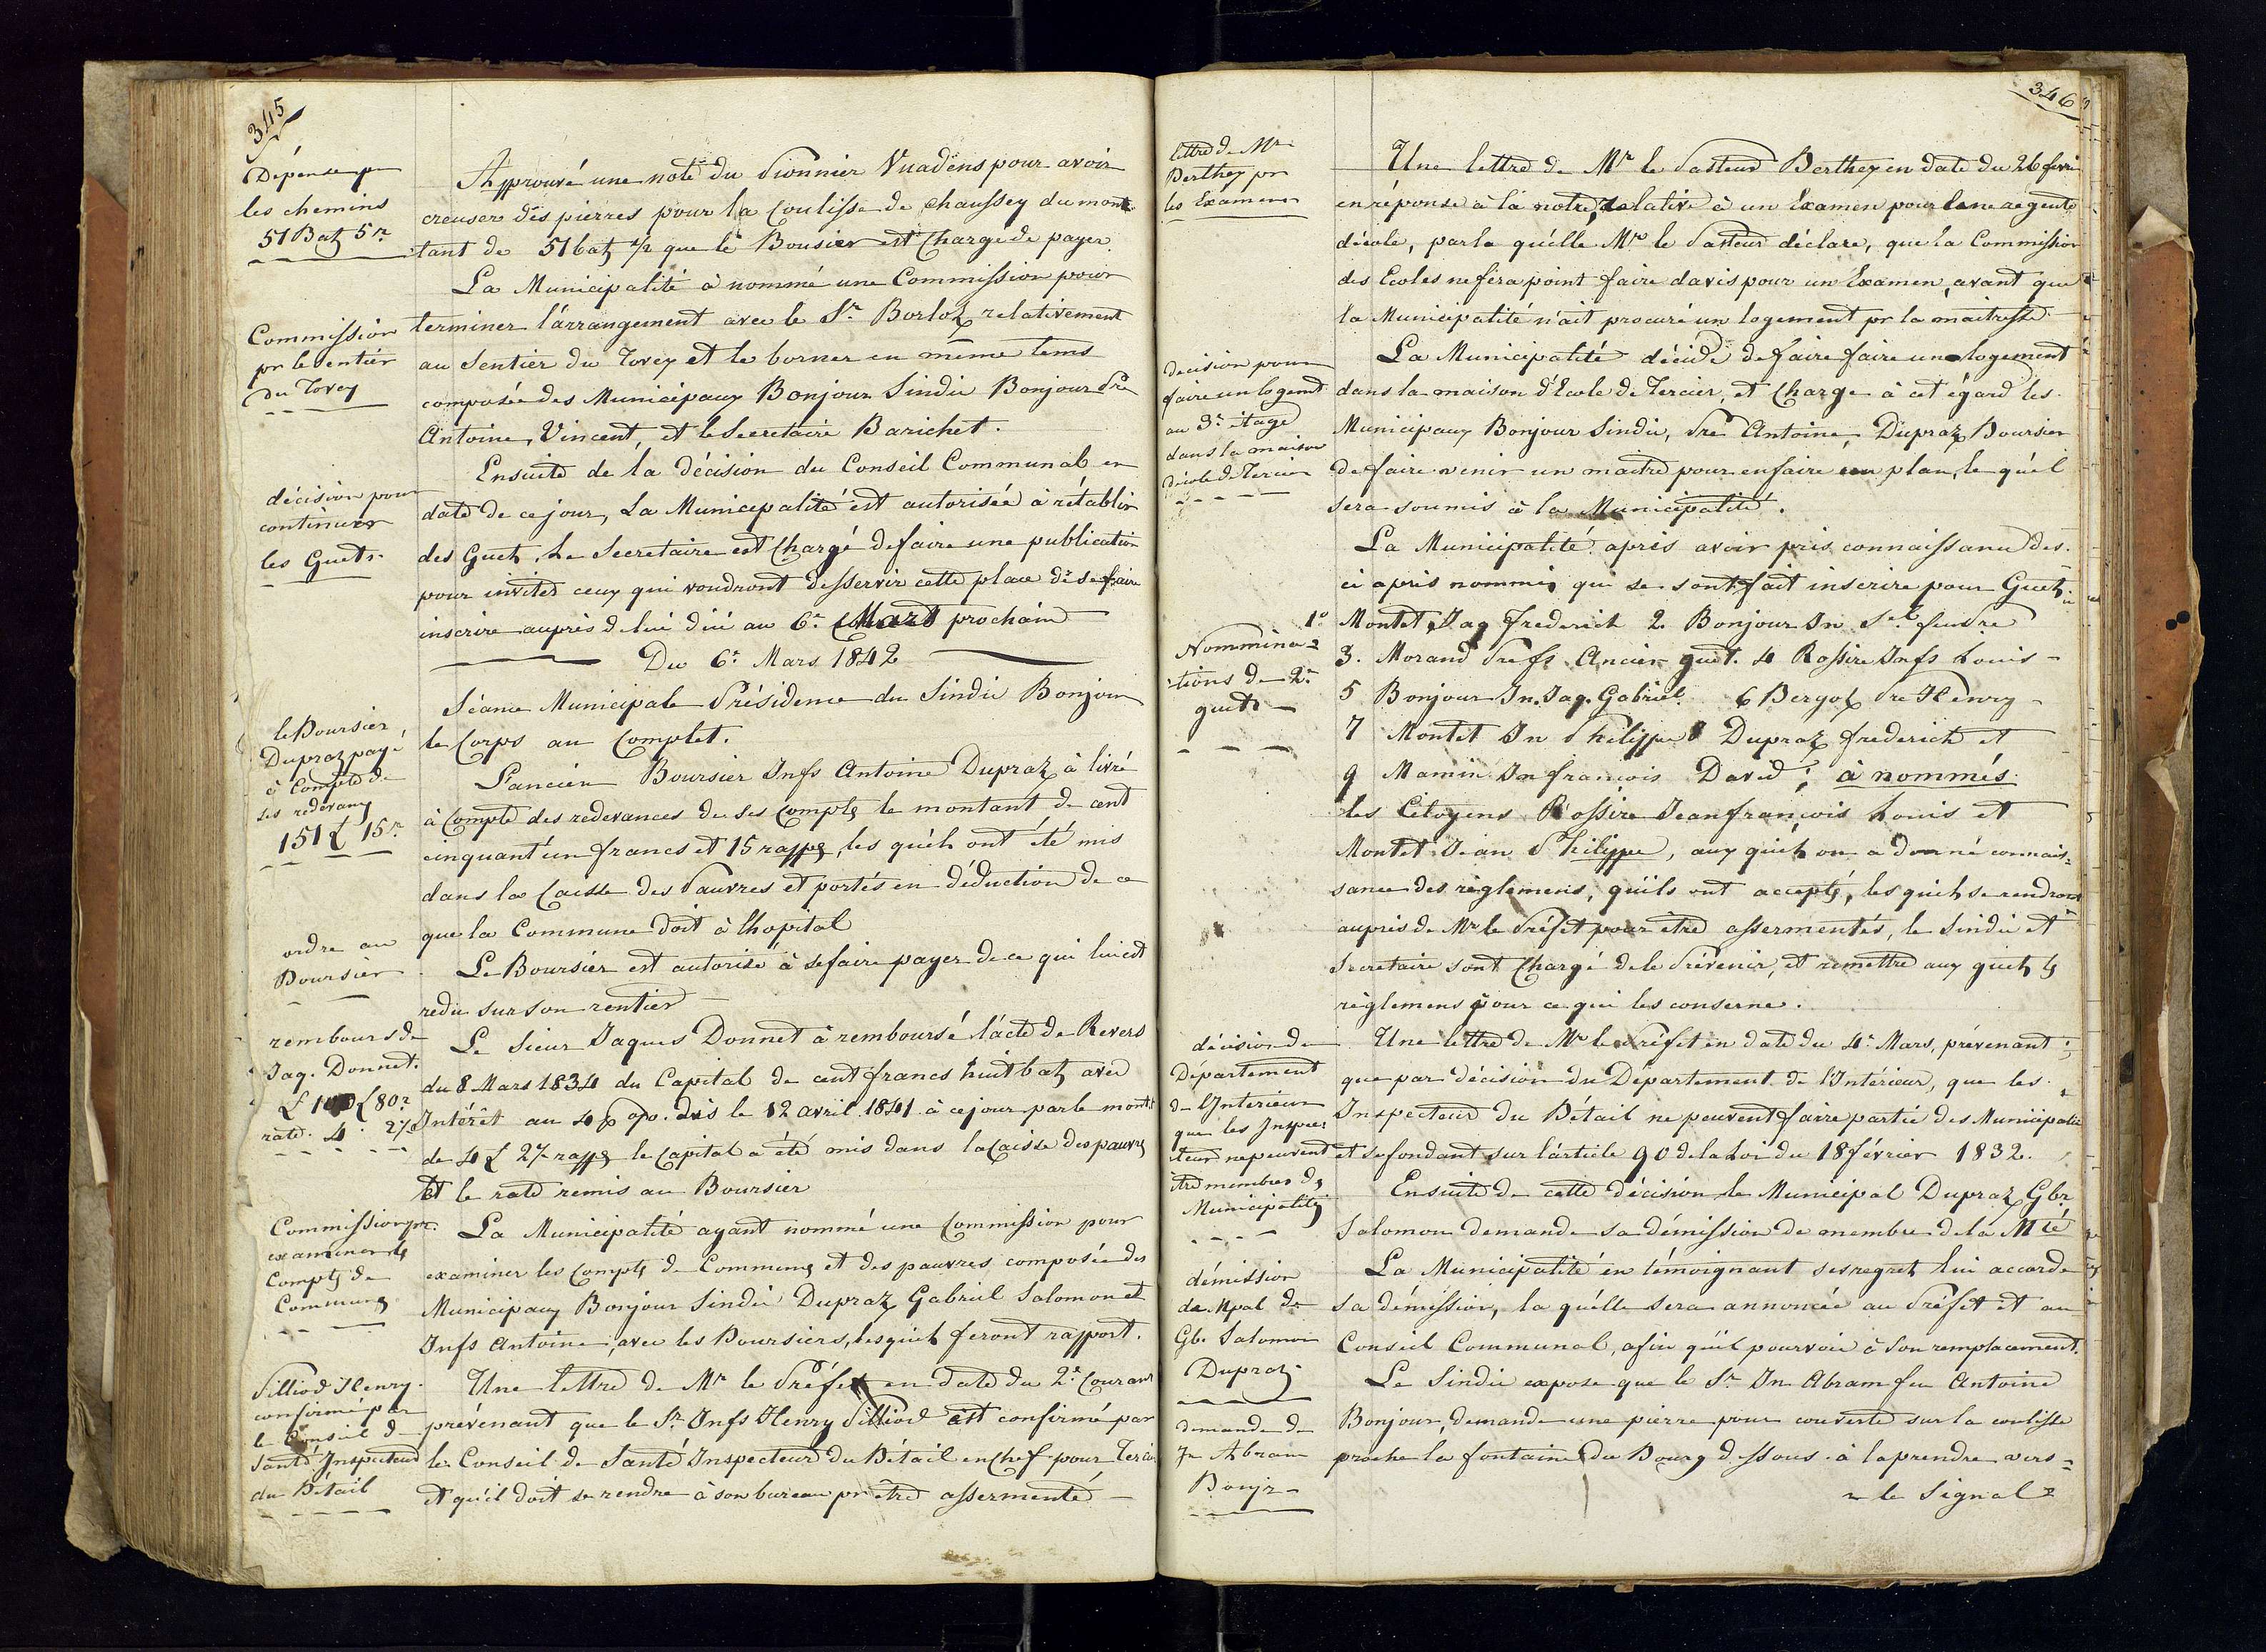 345
Dépense pr
les chemins
51 Batz 5r.
Approuvé une note du Pionnier Vuadens pour avoir
creuser des pierres pour la Coulisse de Chaussey du mon-
tant de 51 batz 1/2 que le Bousier est Chargé de payer.
Commission
pr le sentier
du Tovey
La Municipalité à nommé une Commission pour
terminer l'arrangement avec le Sr. Borloz relativement
au Sentier du Tovey et le borner en même tems
composée des Municipaux Bonjour Sindic Bonjour Pre
Antoine, Vincent, et le Secretaire Barichet.
décision pour
continuer
les Guets.
Ensuite de la décision du Conseil Communal en
date de ce jour, La Municipalité est autorisée à rétablir
des Guets, Le Secretaire est Chargé de faire une publication
pour inviter ceux qui voudront desservir cette place de se faire
inscrire auprès de lui d'ici au 6e. Mars prochain
Du 6e. Mars 1842
Séance Municipale Présidence du Sindic Bonjour
le Corps au Complet.
le Boursier
Dupraz payé
à Compte de
ses redevanç
151 £ 15r.
L'ancien Boursier Jnfs Antoine Dupraz à livré
à Compte des redevances de ses Compts le montant de cent
cinquant'un francs et 15 rapps, les quels ont été mis
dans la Caisse des Pauvres et portés en déduction de ce
que la Commune doit à l'hopital
ordre au
Boursier
Le Boursier est autorisé à se faire payer de ce qui lui est
redu sur son rentier
rembours de
Jaq. Donnet.
£ 100 £ 80r
rate. 4. 27
Le Sieur Jaques Donnet à remboursé l'acte de Revers
du 8 Mars 1834 du Capital de cent francs huit batz avec
Intérêt au 4 p %. dès le 12 avril 1841 à ce jour par le montt
de 4 £ 27 rapps le Capital a été mis dans la Caisse des pauvrs
Et le rate remis au Boursier
Commission pr.
examiner les
Compts de
Communs
La Municipalité ayant nommé une Commission pour
examiner les Compts de Communs et des pauvres composée des
Municipaux Bonjour Sindic Dupraz Gabriel Salomon et
Jnfs Antoine, avec les Boursiers, lesquels feront rapport.
Pilliod Henry
confirmé par
le Conseil de
Santé Inspecteur
du Bétail
Une lettre de Mr le Préfet en date du 2e. Courant
prévenant que le Sr. Jnfs Henry Pilliod est confirmé par
le Conseil de Santé Inspecteur du Bétail en Chef pour
et qu'il doit se rendre à son bureau pr être assermenté
346
lettre de Mr
Berthey pr
les Examens
Une lettre de Mr le Pasteur Berthey en date du 26 fevri
en réponse à la notre, relative à un Examen pour une régente
d'école, par la qu'elle Mr le Pasteur déclare, que la Commission
des Ecoles ne fera point faire d'avis pour un Examen, avant que
la Municipalité n'ait procuré un logement pr la maitresse.
décision pour
faire un logemt
au 3e. étage
dans la maison
d'école de Tercier
La Municipalité décide de faire faire un logement
dans la maison d'Ecole de Tercier, et Charge à cet égard les
Municipaux Bonjour Sindic, Pre Antoine, Dupraz Boursier
de faire venir un maitre pour en faire un plan, le qu'el
sera soumis à la Municipalité.
Nommina-
tions de 2e.
guets
La Municipalité après avoir pris connaissance des
ci après nommés qui se sont fait inscrire pour Guets
1o Montet, Jaq frederich 2. Bonjour Jn Sel. fendre
3. Morand Prefs Ancien guet. 4 Rossire Jnfs Louis -
5 Bonjour Jn. Jaq. Gabriel. 6 Bergoz Pre Henry
7 Montet Jn Philippe 8 Dupraz frederich et
9 Mamin Jn françois David; à nommés
les Citoyens Rossire Jean françois Louis et
Montet Jean Philippe, aux quels on a donné connais-
sance des règlemens, qu'ils ont acceptés, les quels se rendront
auprès de Mr le Préfet pour être assermentés, le Sindic et
Secretaire sont Chargé de le Prévenir, et remettre aux guets les
règlemens pour ce qui les conserne.
décision de
Département
de l'Interieur
que les Inspec-
teurs ne peuvent
être membres ds
Municipalités
Une lettre de Mr le Préfet en date du 4e. Mars, prévenant
que par décision du Département de l'Intérieur, que les
Inspecteurs du Bétail ne peuvent faire partie des Municipalité
et se fondant sur l'article 90 de la Loi du 18 février 1832.
démission
de Mpal de
Gbr. Salomon
Dupraz
Ensuite de cette décision le Municipal Dupraz Gbr
Salomon demande sa démission de membre de la Mté
La Municipalité en témoignant ses regrets lui accorde
sa démission, la qu'elle sera annoncée au Préfet et au
Conseil Communal, afin qu'il pourvoie à son remplacement.
demande de
Jn Abram
Bonjr
Le Sindic expose que le Sr Jn Abram feu Antoine
Bonjour, demande une pierre pour couverte sur la coulisse
proche la fontaine du Bourg dessous à la prendre vers
le Signal